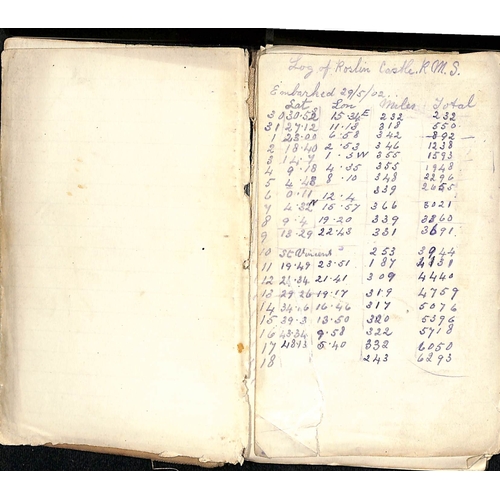 Log of Roslin Castle. R.M.S.
Embarked 29/5/02.
Lat Lon Miles Total
30 30.52 15.34 E 232 232
31 27.12 11.18 318 550
1 23.00 6.58 342 892
2 18.40 2.53 346 1238
3 14.7 1.3 W 355 1593
4 9.18 4.35 355 1948
5 4.43 8.10 348 2296
6 0.11 12.4 339 2655
7 4.32 N 15.57 366 3021
8 9.4 19.20 339 3360
9 13.29 22.43 331 3691
10 St Vincent 253 3944
11 19.49 23.51 187 4131
12 24.34 21.41 309 4440
13 29.26 19.17 319 4759
14 34.16 16.46 317 5076
15 39.3 13.50 320 5396
16 43.34 9.58 322 5718
17 48.13 5.40 332 6050
18 243 6293